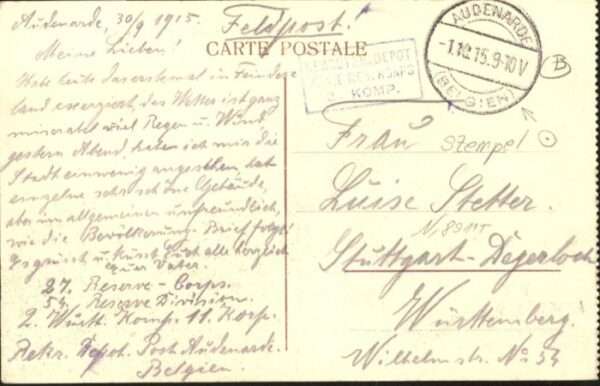 Audenarde, 30/9 1915.
Feldpost!
CARTE POSTALE
Meine Lieben!
Habe heute das erstemal in Feindes-
land exerziert, das Wetter ist ganz
miserabel viel Regen u. Wind
gestern Abend, haben ich mir die
Stadt ein wenig angesehen, hat
einzelne sehr schöne Gebäude,
aber im allgemeinen unfreundlich,
wie die Bevölkerung. Brief folgt!
Es grüsst u. küsst Euch alle herzlich
euer Vater.
27. Reserve-Corps.
54 Reserve Division.
2. Württ. Komp. 11. Korp.
Rekr. Depot. Post Audenarde.
Belgien.
DEPOT
RES. KORPS
KOMP.
AUDENARDE
-1.10.15.9-10V
(BELGIEN)
B
Stempel
Frau
Luise Stetter.
Stuttgart-Degerloch
Württemberg.
Wilhelmstr. No 54